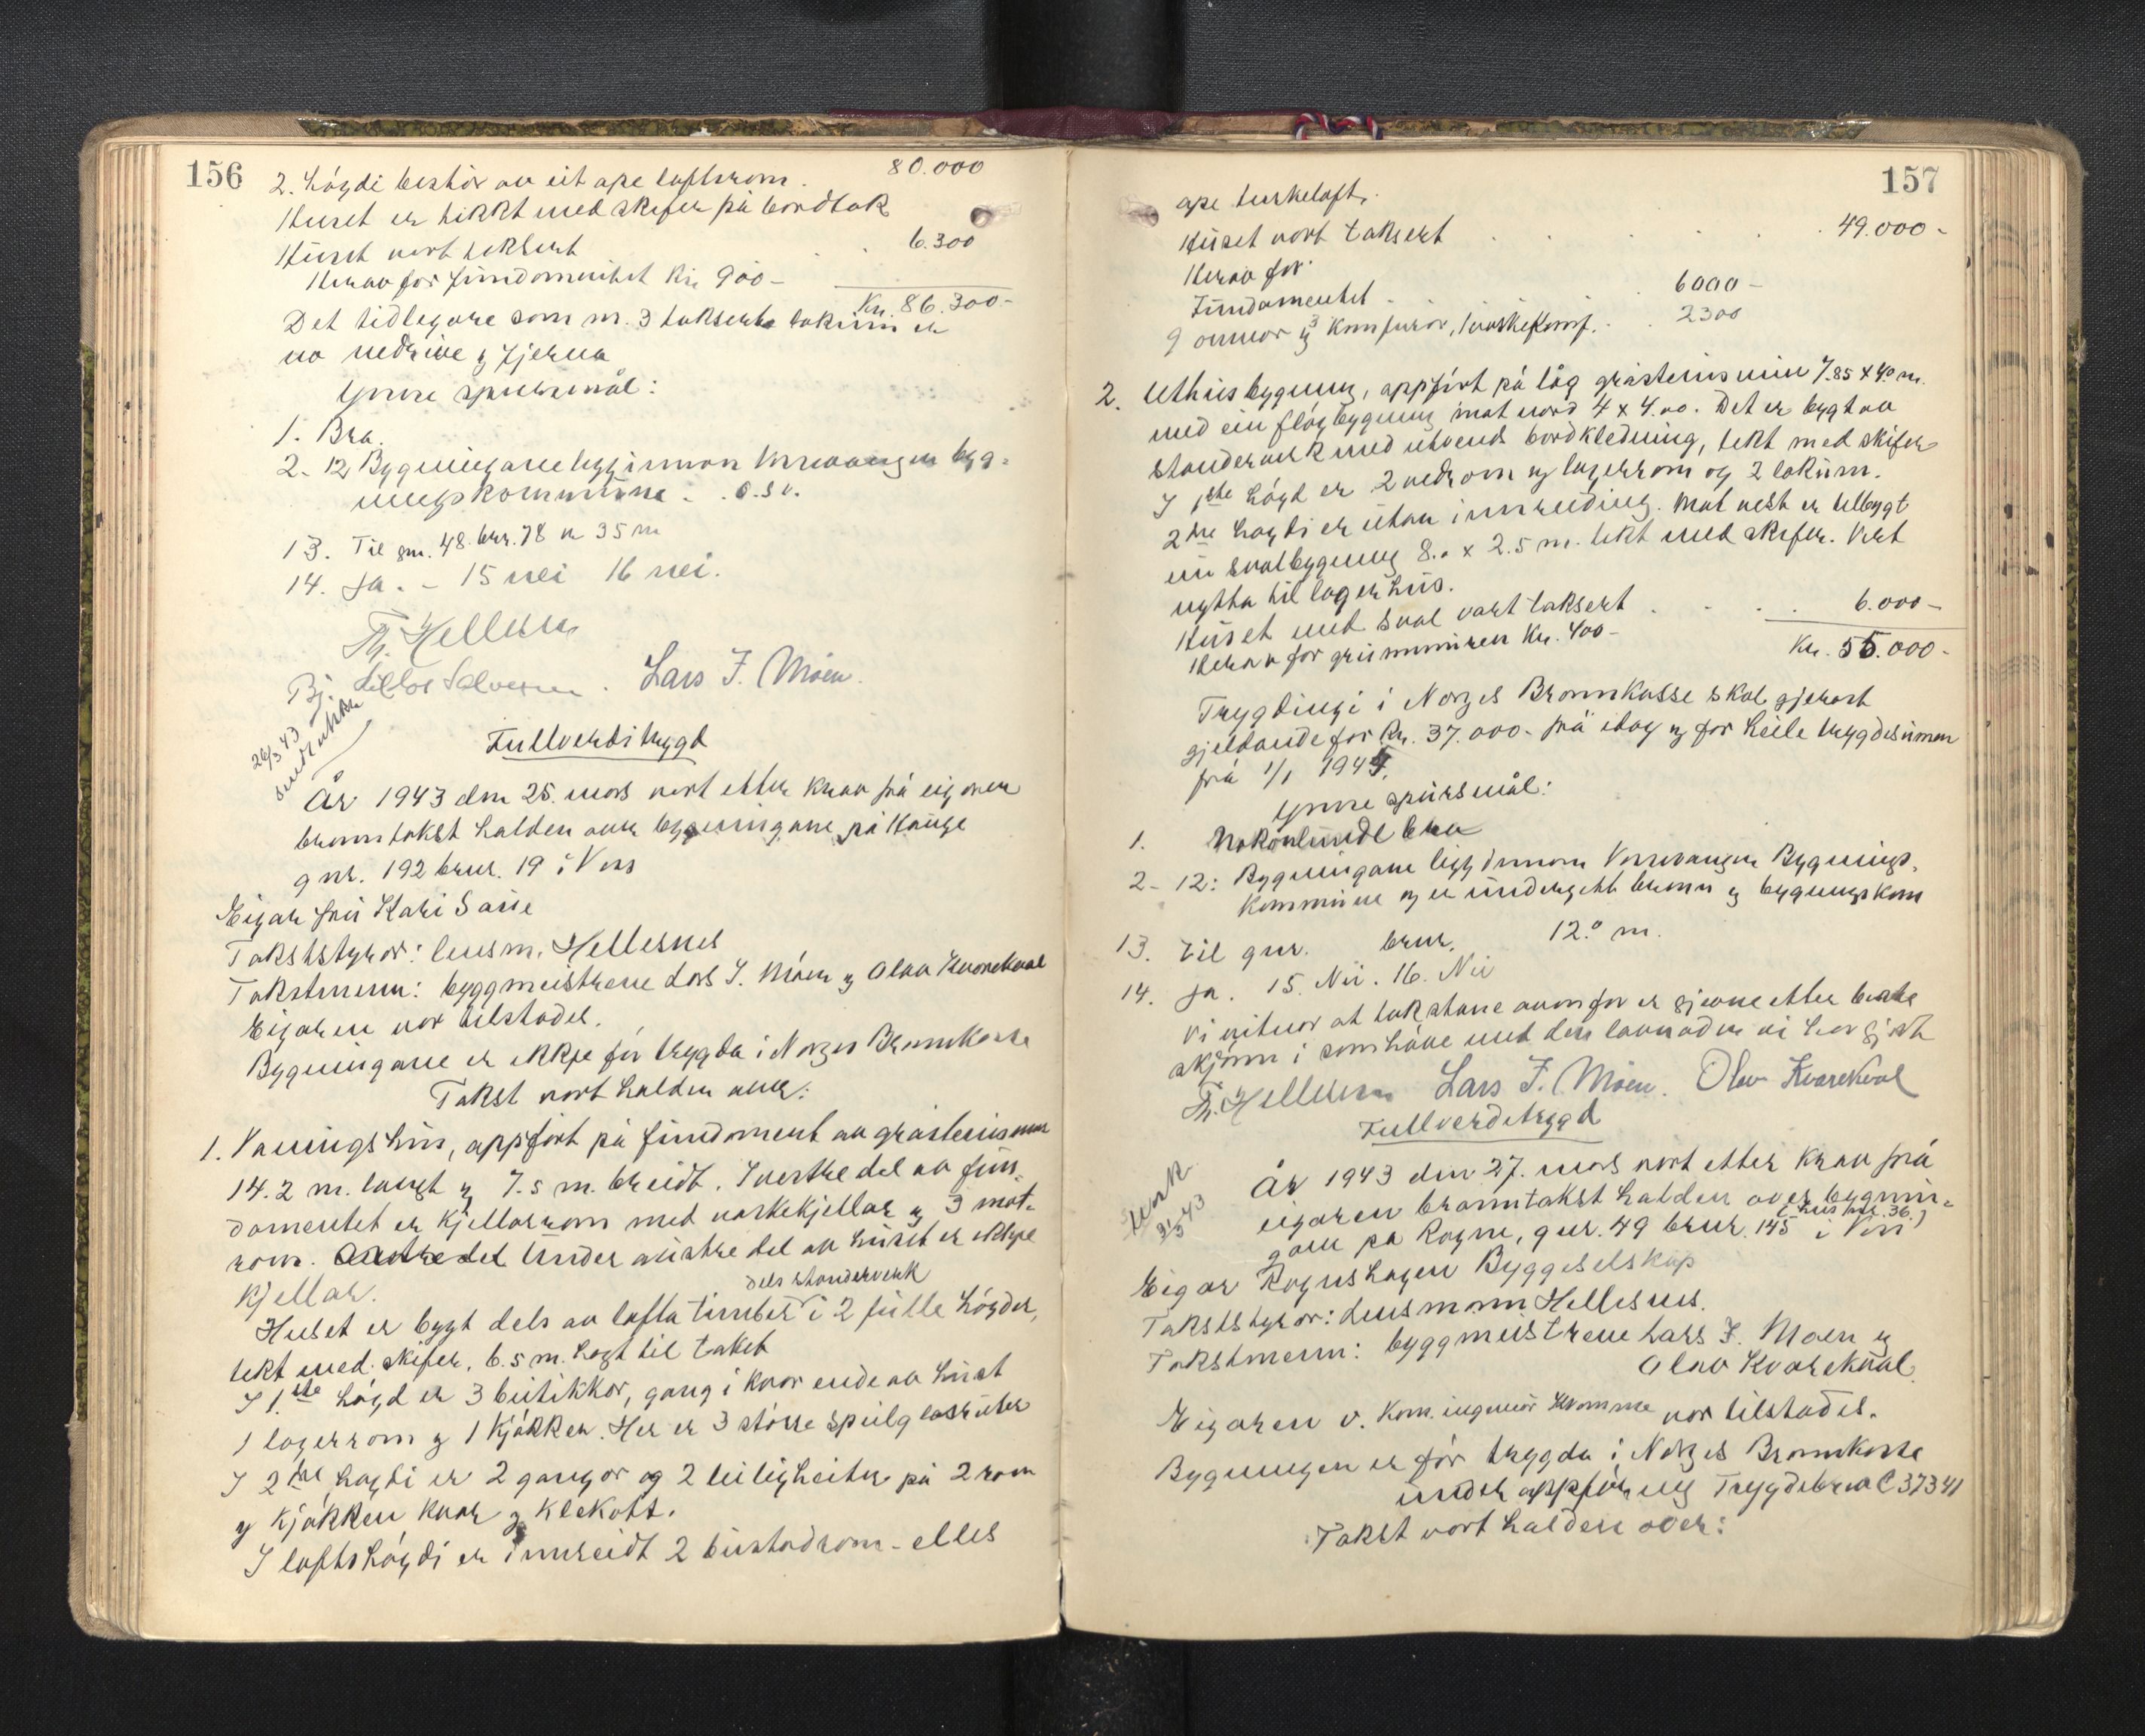 156
2. högdi bestör av eit ope loftsrom. 80.000
Huset er tekkt med skifer på bordtak
Huset vert taksert 6.300
Herav for fundomentet kr. 900 -
Kr. 86.300 -
Det tidlegare som nr. 3 takserte lokum er
no nedrive og fjerna
Ymse spursmål:
1. Bra.
2 - 12 Bygningane ligg innan Vossevangen byg-
ningskommune . o.s.v.
13. Til gnr. 48. bnr. 78 er 35 m
14. Ja. - 15 nei 16 nei.
Lars J. Møen.
26/3 43
Fullverditrygd
År 1943 den 25. mars vart etter krav frå eigaren
branntakst halden over bygningane på Hauge
gnr. 192 bnr. 19 i Voss
Eigar fru Kari Saue
Takststyrar: lensm. Hellesnes
Takstmenn: byggmeistrane Lars J. Møen og Olav Kvarekval
Eigaren var tilstades.
Bygningane er ikkje før trygda i Norges Brannkasse
Takst vart halden over:
1. Vaaningshus, oppført på fundament av gråsteinsmur
14.2 m. langt og 7.5 m. breidt. I vestre del av fun-
damentet er kjellarrom med vaskekjellar og 3 mat-
rom. Under austre del av huset er ikkje
kjellar.
dels standerverk
Huset er bygt dels av lafta timber i 2 fulle høgder,
tekt med skifer. 6.5 m. høgt til taket
I 1.ste høgd er 3 butikkar, gang i kvar ende av huset
1 lagerrom og 1 kjøkken. Her er 3 større speilglasruter
I 2dre høgdi er 2 gangar og 2 leiligheiter på 2 rom
og kjøkken kvar og klekott.
I loftshøgdi er innreidt 2 bustadrom - elles
157
ope turkeloft.
Huset vart taksert . . . . . 49.000 -
Herav for
Fundamentet - 6000 -
9 omnar og 3 komfurar, 1 vaskekomf. . 2300
2. Uthusbygning, oppført på låg gråsteinsmur 7.85 x 4.0 m.
med ein fløybygning mot nord 4 x 4.00. Det er bygt av
standerverk med utvends bordkledning, tekt med skifer
I 1ste høgd er 2 vedrom og lagerrom og 2 lokum.
2dre høgdi er utan innreiding. Mot vest er tilbygt
ein svalbygning 8.0 x 2.5 m. tekt med skifer. Vert
nytta til lagerhus.
Huset med sval vart taksert . . . . 6.000 -
Herav for grunnmuren Kr. 400 -
Kr. 55.000 -
Trygdingi i Norges Brannkasse skal gjerast
gjeldande for Kr. 37.000 - frå idag og for heile trygdesumen
frå 1/1 1944.
Ymse spursmål:
1. Nokonlunde bra
2 - 12: Bygningane ligg innom Vossevangen Bygnings-
kommune og er undergjett brann og bygningskom
13. Til gnr. bnr. 12.0 m.
14. Ja. 15. Nei. 16. Nei
Vi vitnar at takstane ovanfor er gjevne etter beste
skjønn i samhøve med den lovnaden vi har gjeve
Lars J. Møen. Olav Kvarekval
Fullverditrygd
31/3 43
År 1943 den 27. mars vart etter krav frå
eigaren branntakst halden over bygnin-
(hus nr. 36.)
gane på Rogne, gnr. 49 bnr. 145 i Voss
Eigar Rognshagen Byggeselskap
Takststyrar: Lensmann Hellesnes.
Takstmenn: byggmeistrane Lars J. Moen og
Olav Kvarekval
Eigaren v. Kom. ingeniør Kvamme var tilstades.
Bygningen er før trygda i Norges Brannkasse
under oppføring Trygdebrev C 37341
Takst vart halden over: